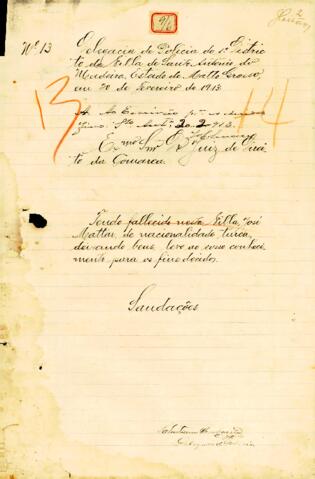 Nº 13
Delegacia de Policia do 1º Distric
to da Villa de Santo Antonio do
Madeira, Estado de Matto Grosso,
em 20 de Fevereiro de 1913.
13
14
A. Ao Escrivão pª os devidos
fins. Sto Antº 20-2-913.
Exmº Snr Dr Juiz de Direi
to da Comarca.
Tendo fallecido nesta Villa, José
Mattar, de nacionalidade turca,
deixando bens, levo ao vosso conheci
mento para os fins devidos.
Saudações